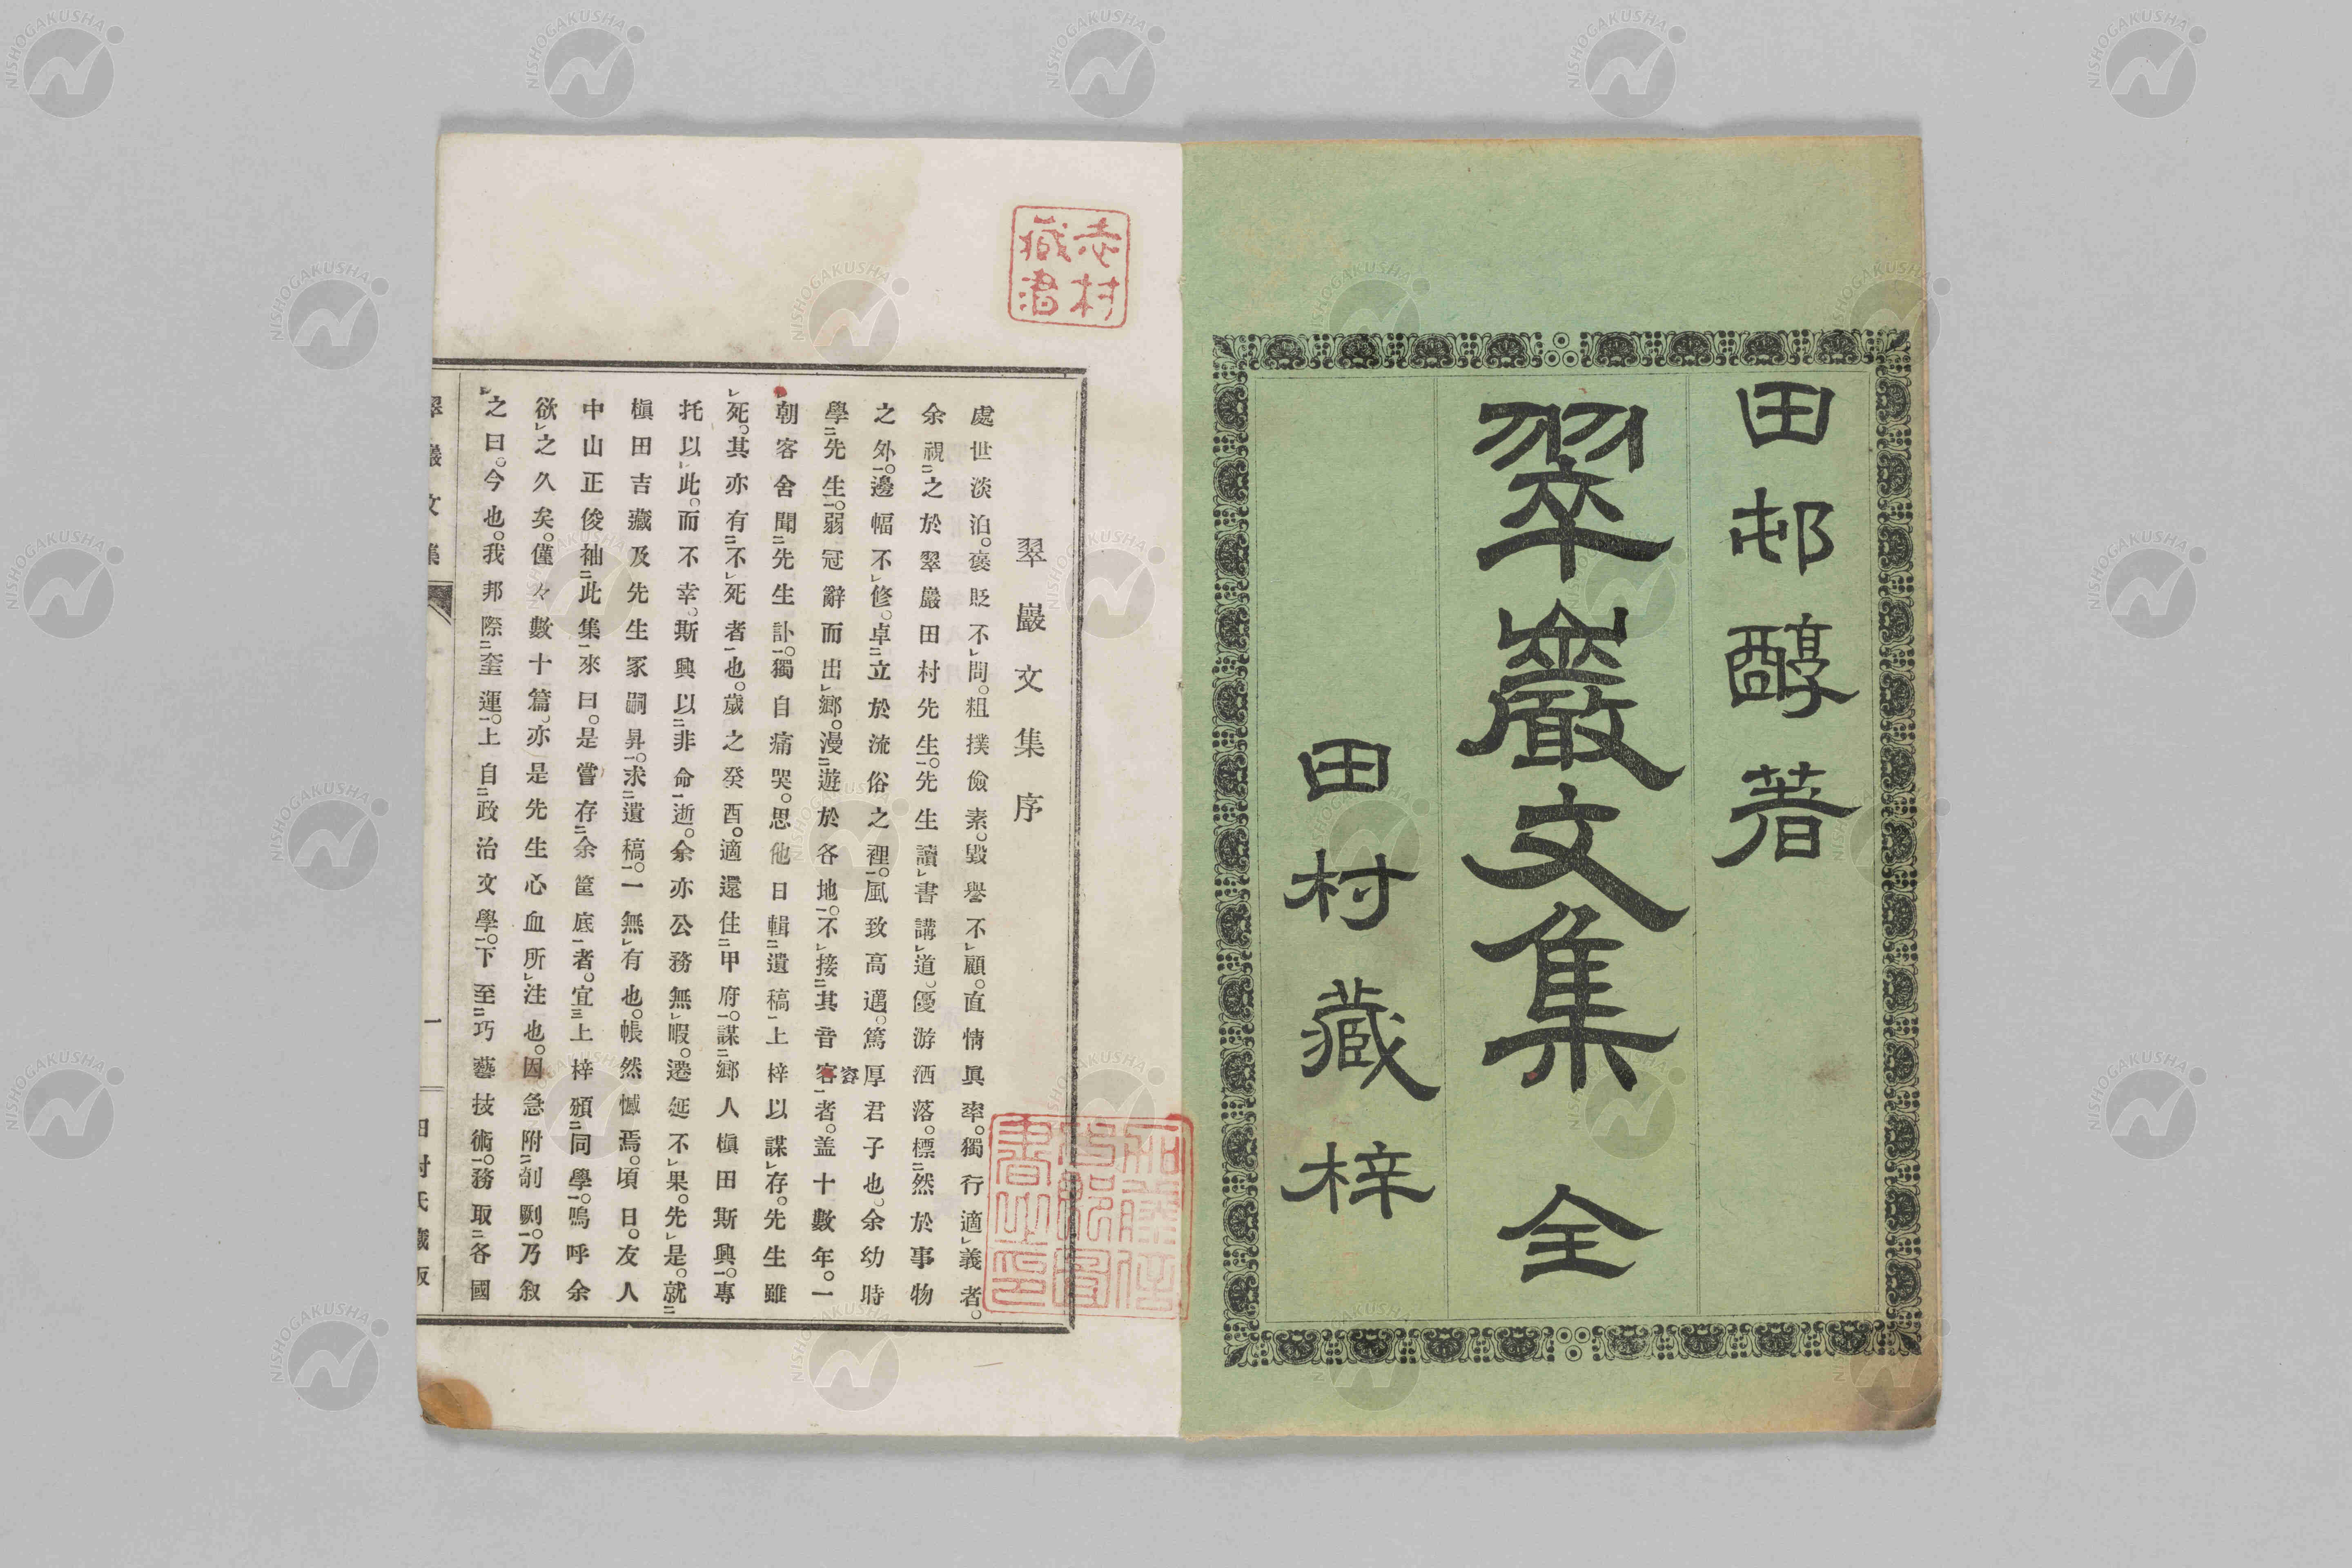 田邨醇著
翠巖文集 全
田村藏梓
志村藏書
翠巖文集序
處世淡泊。褒貶不㆑問。粗撲儉素。毀譽不㆑顧。直情眞率。獨行適㆑義者。
余視㆓之於翠巖田村先生㆒。先生讀㆑書講㆑道。優游洒落。標㆓然於事物
之外㆒。邊幅不㆑修。卓㆓立於流俗之裡㆒。風致高邁。篤厚君子也。余幼時
學㆓先生㆒。弱冠辭而出㆑鄉。漫㆓遊於各地㆒。不㆑接㆓其音客㆒者。盖十數年。一
容
朝客舍聞㆓先生訃㆒。獨自痛哭。思他日輯㆓遺稿㆒上梓以謀㆑存。先生雖
㆑死。其亦有㆓不㆑死者㆒也。歲之癸酉。適還住㆓甲府㆒。謀㆓鄉人槇田斯興㆒。專
托以㆑此。而不幸。斯興以㆓非命㆒逝。余亦公務無㆑暇。遷延不㆑果。先㆑是。就㆓
槇田吉藏及先生冢嗣昇㆒。求㆓遺稿㆒。一無㆑有也。悵然憾焉。頃日。友人
中山正俊袖㆓此集㆒來曰。是嘗存㆓余筐底㆒者。宜㆘上梓頒㆓同學㆒。嗚呼余
欲㆑之久矣。僅々數十篇。亦是先生心血所㆑注也。因急附㆓剞劂㆒。乃敘
㆑之曰。今也。我邦際㆓奎運㆒。上自㆓政治文學㆒。下至㆓巧藝技術㆒。務取㆓各國
翠巖文集
一
田村氏藏版
NISHOGAKUSHA